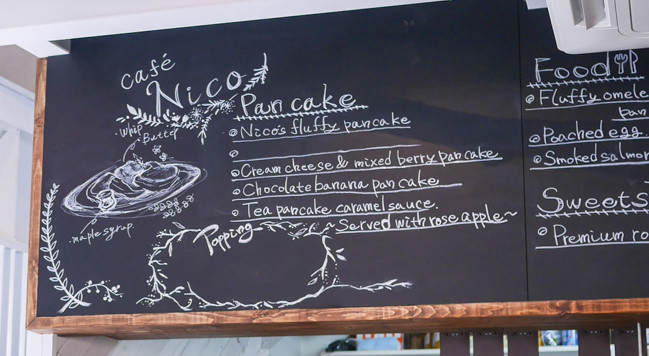 café
Nico
Pancake
Nico's fluffy pancake
Cream cheese & mixed berry pancake
Chocolate banana pancake
Tea pancake caramel sauce.
~Served with rose apple~
・Whip
Butter
・maple syrup.
Topping
Food
Fluffy omele
pan
Poached egg.
Smoked salmon
Sweets
Premium ro